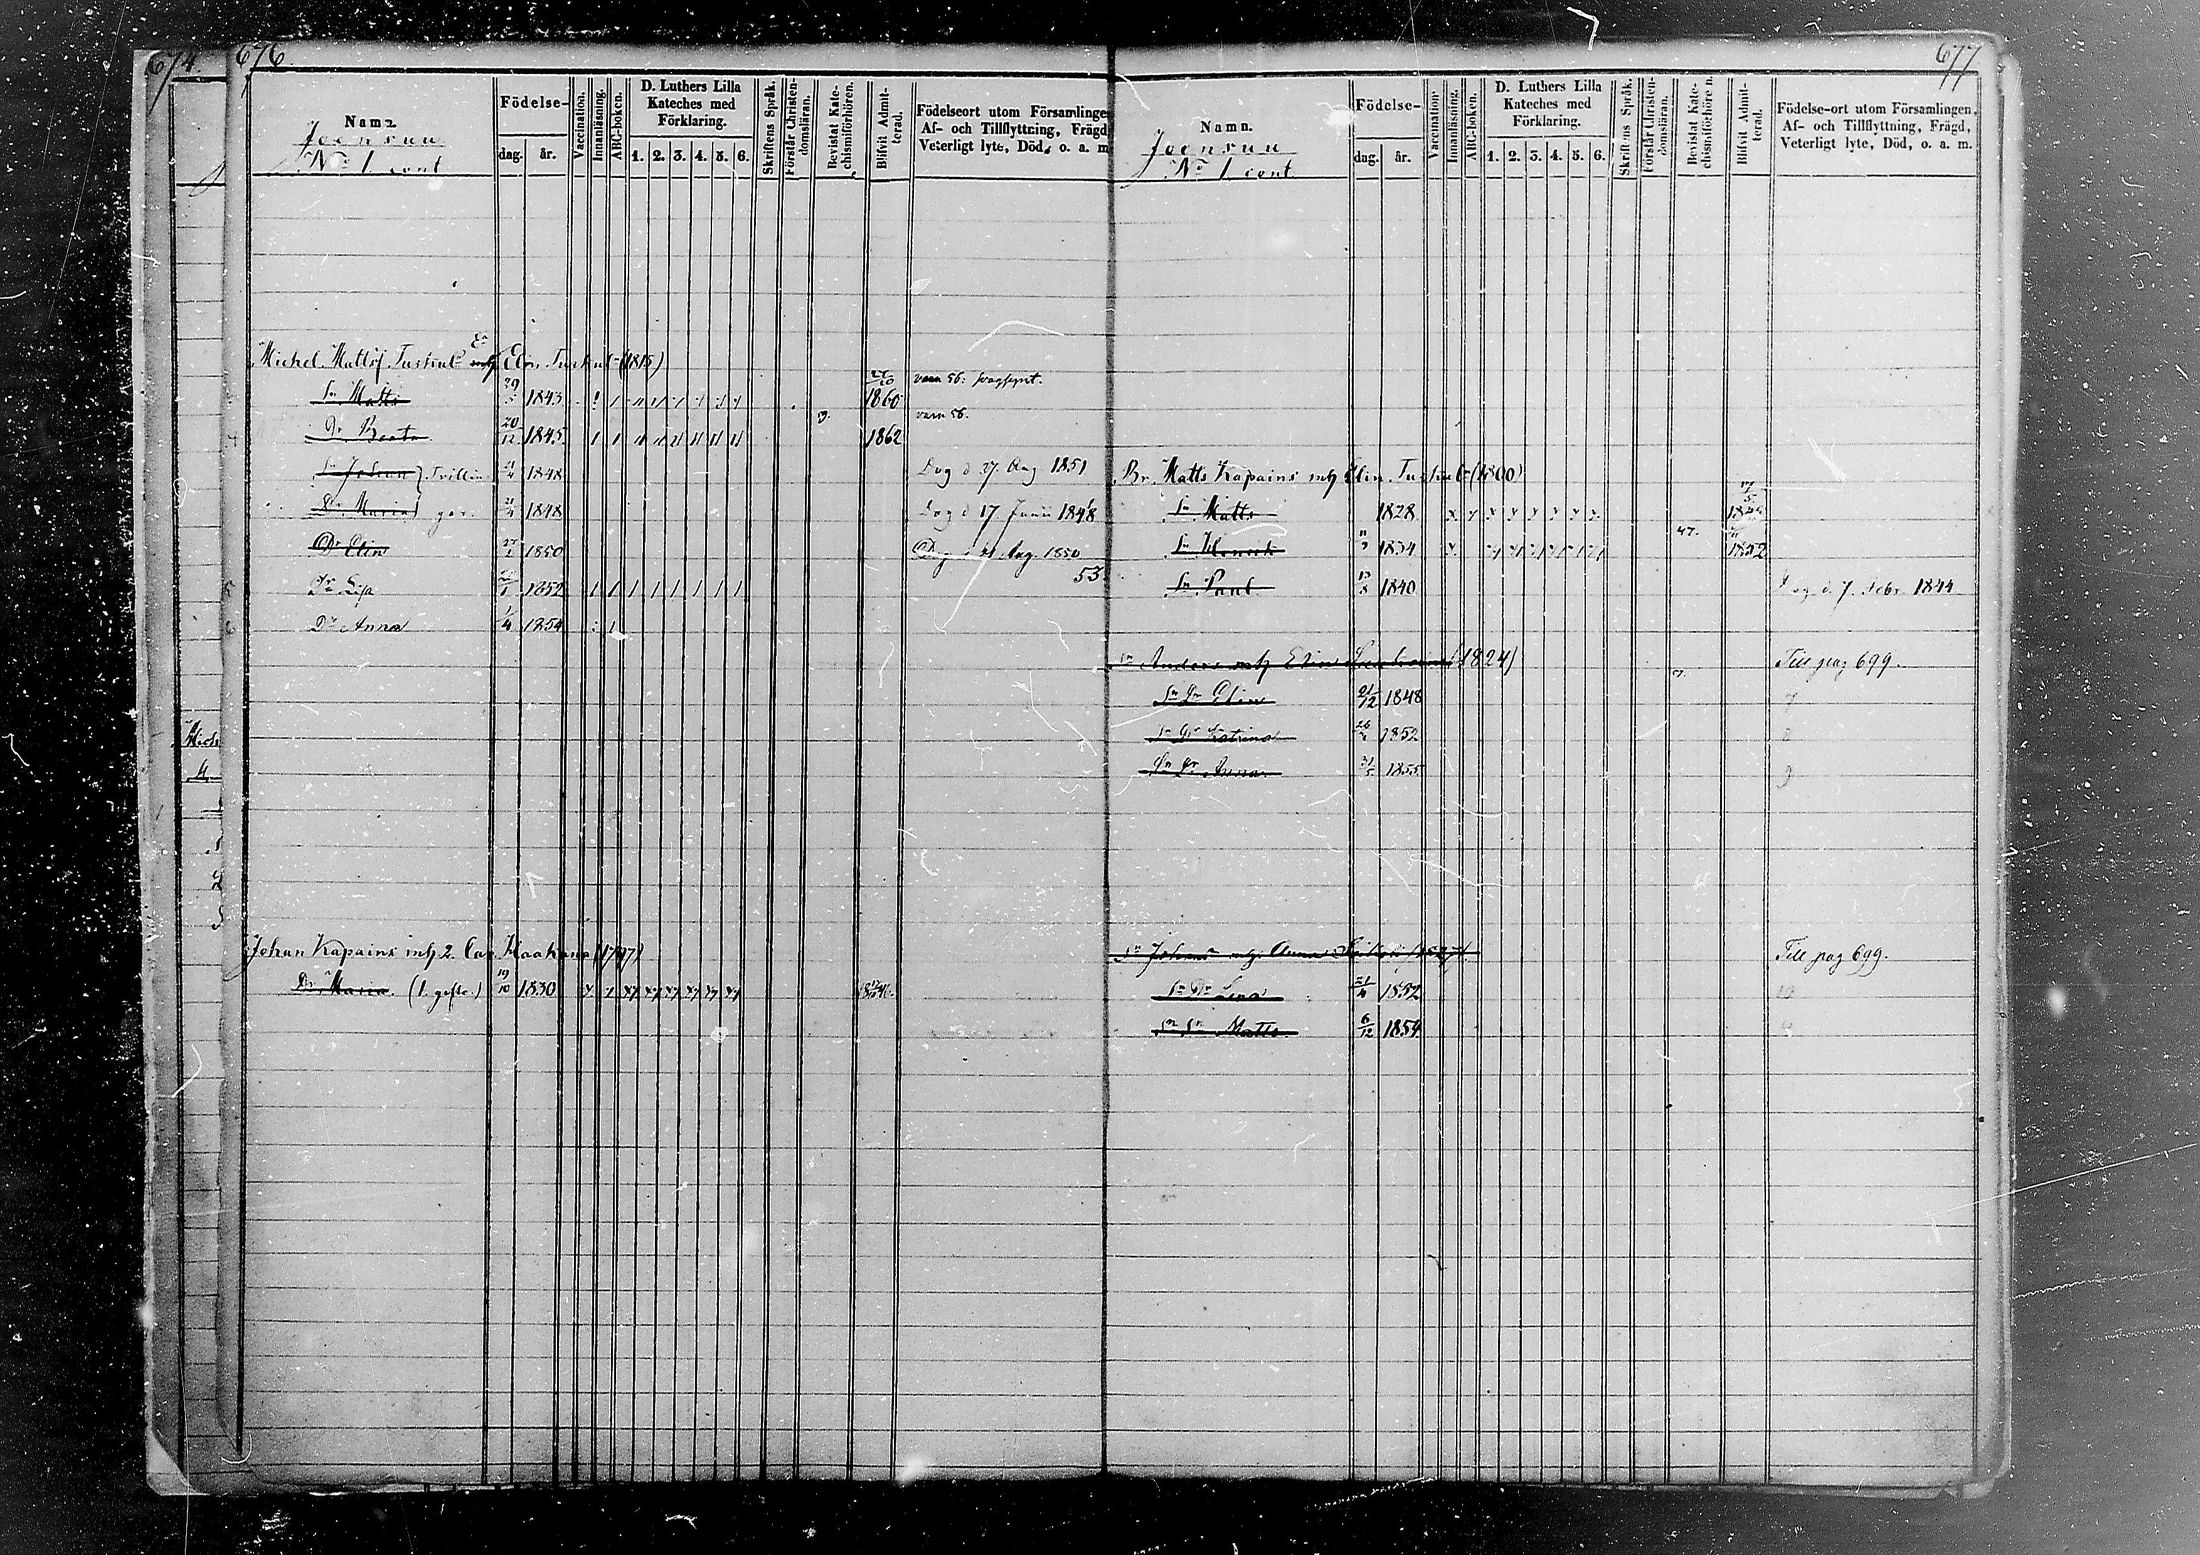 674.
676.
Namn.
Joensuu
No 1. cont
Födelse-
dag. år.
Vaccination.
Innanläsning.
ABC-boken.
D. Luthers Lilla
Kateches med
Förklaring.
1. 2. 3. 4. 5. 6.
Skriftens Språk.
Förstår Christen-
domsläran.
Bevistat Kate-
chismiförhören.
Blifvit Admit-
terad.
Födelseort utom Församlingen
Af- och Tillflyttning, Frägd,
Veterligt lyte, Död, o. a. m.
Michel Mattsf. Tuskul Elin Tuskul (1815)
Sn Matts 1843 1860 vacn 56.
Dr Beata 20/12 1845 1862 vacn 56.
Sn Johan Tvillin 1848 Dog d 27. Aug 1851
Dr Maria gar. 1848 Dog d 17 Junii 1848
Dr Elin 1850 Dog d 21 Aug. 1850
53
Dr Lisa 1852
Dr Anna 1/4 1854
Johan Kapains mh 2. Car. Haakana (1797)
Dr Maria. (1. gifte.) 19/10 1830
677
Namn.
Joensuu
No 1. cont
Födelse-
dag. år.
Vaccination
Innanläsning.
ABC-boken.
D. Luthers Lilla
Kateches med
Förklaring.
1. 2. 3. 4. 5. 6.
Skriftens Språk.
Förstår Christen-
domsläran.
Bevistat Kate-
chismiförhören.
Blifvit Admit-
terad.
Födelse-ort utom Församlingen,
Af- och Tillflyttning, Frägd,
Veterligt lyte, Död, o. a. m.
Br. Matts Kapains mh Elin Tuskul (1800)
Sn Matts 1828
Sn Henrik 1834 47. 1852
Sn Paul 1840 Dog d. 7. Febr. 1844
Sn Anders mh Elin (1824) Till pag 699.
Sn Dr Elin 21/12 1848
Sn Dr Katrina 1852
Sn Dr Anna 31/5 1855
Sn Johan mh Anna Till pag 699.
Sn Dr Lena 1852
Sn Sn Matts 6/12 1854